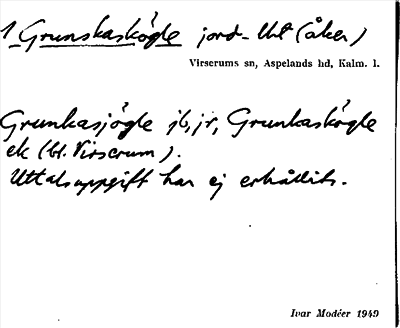 1 Grunskaskögle jord-lht (åker)
Virserums sn, Aspelands hd, Kalm. l.
Grunkasjögle jb, jr, Grunkaskögle
ek (bl. Virserum).
Uttalsuppgift har ej erhållits.
Ivar Modéer 1949